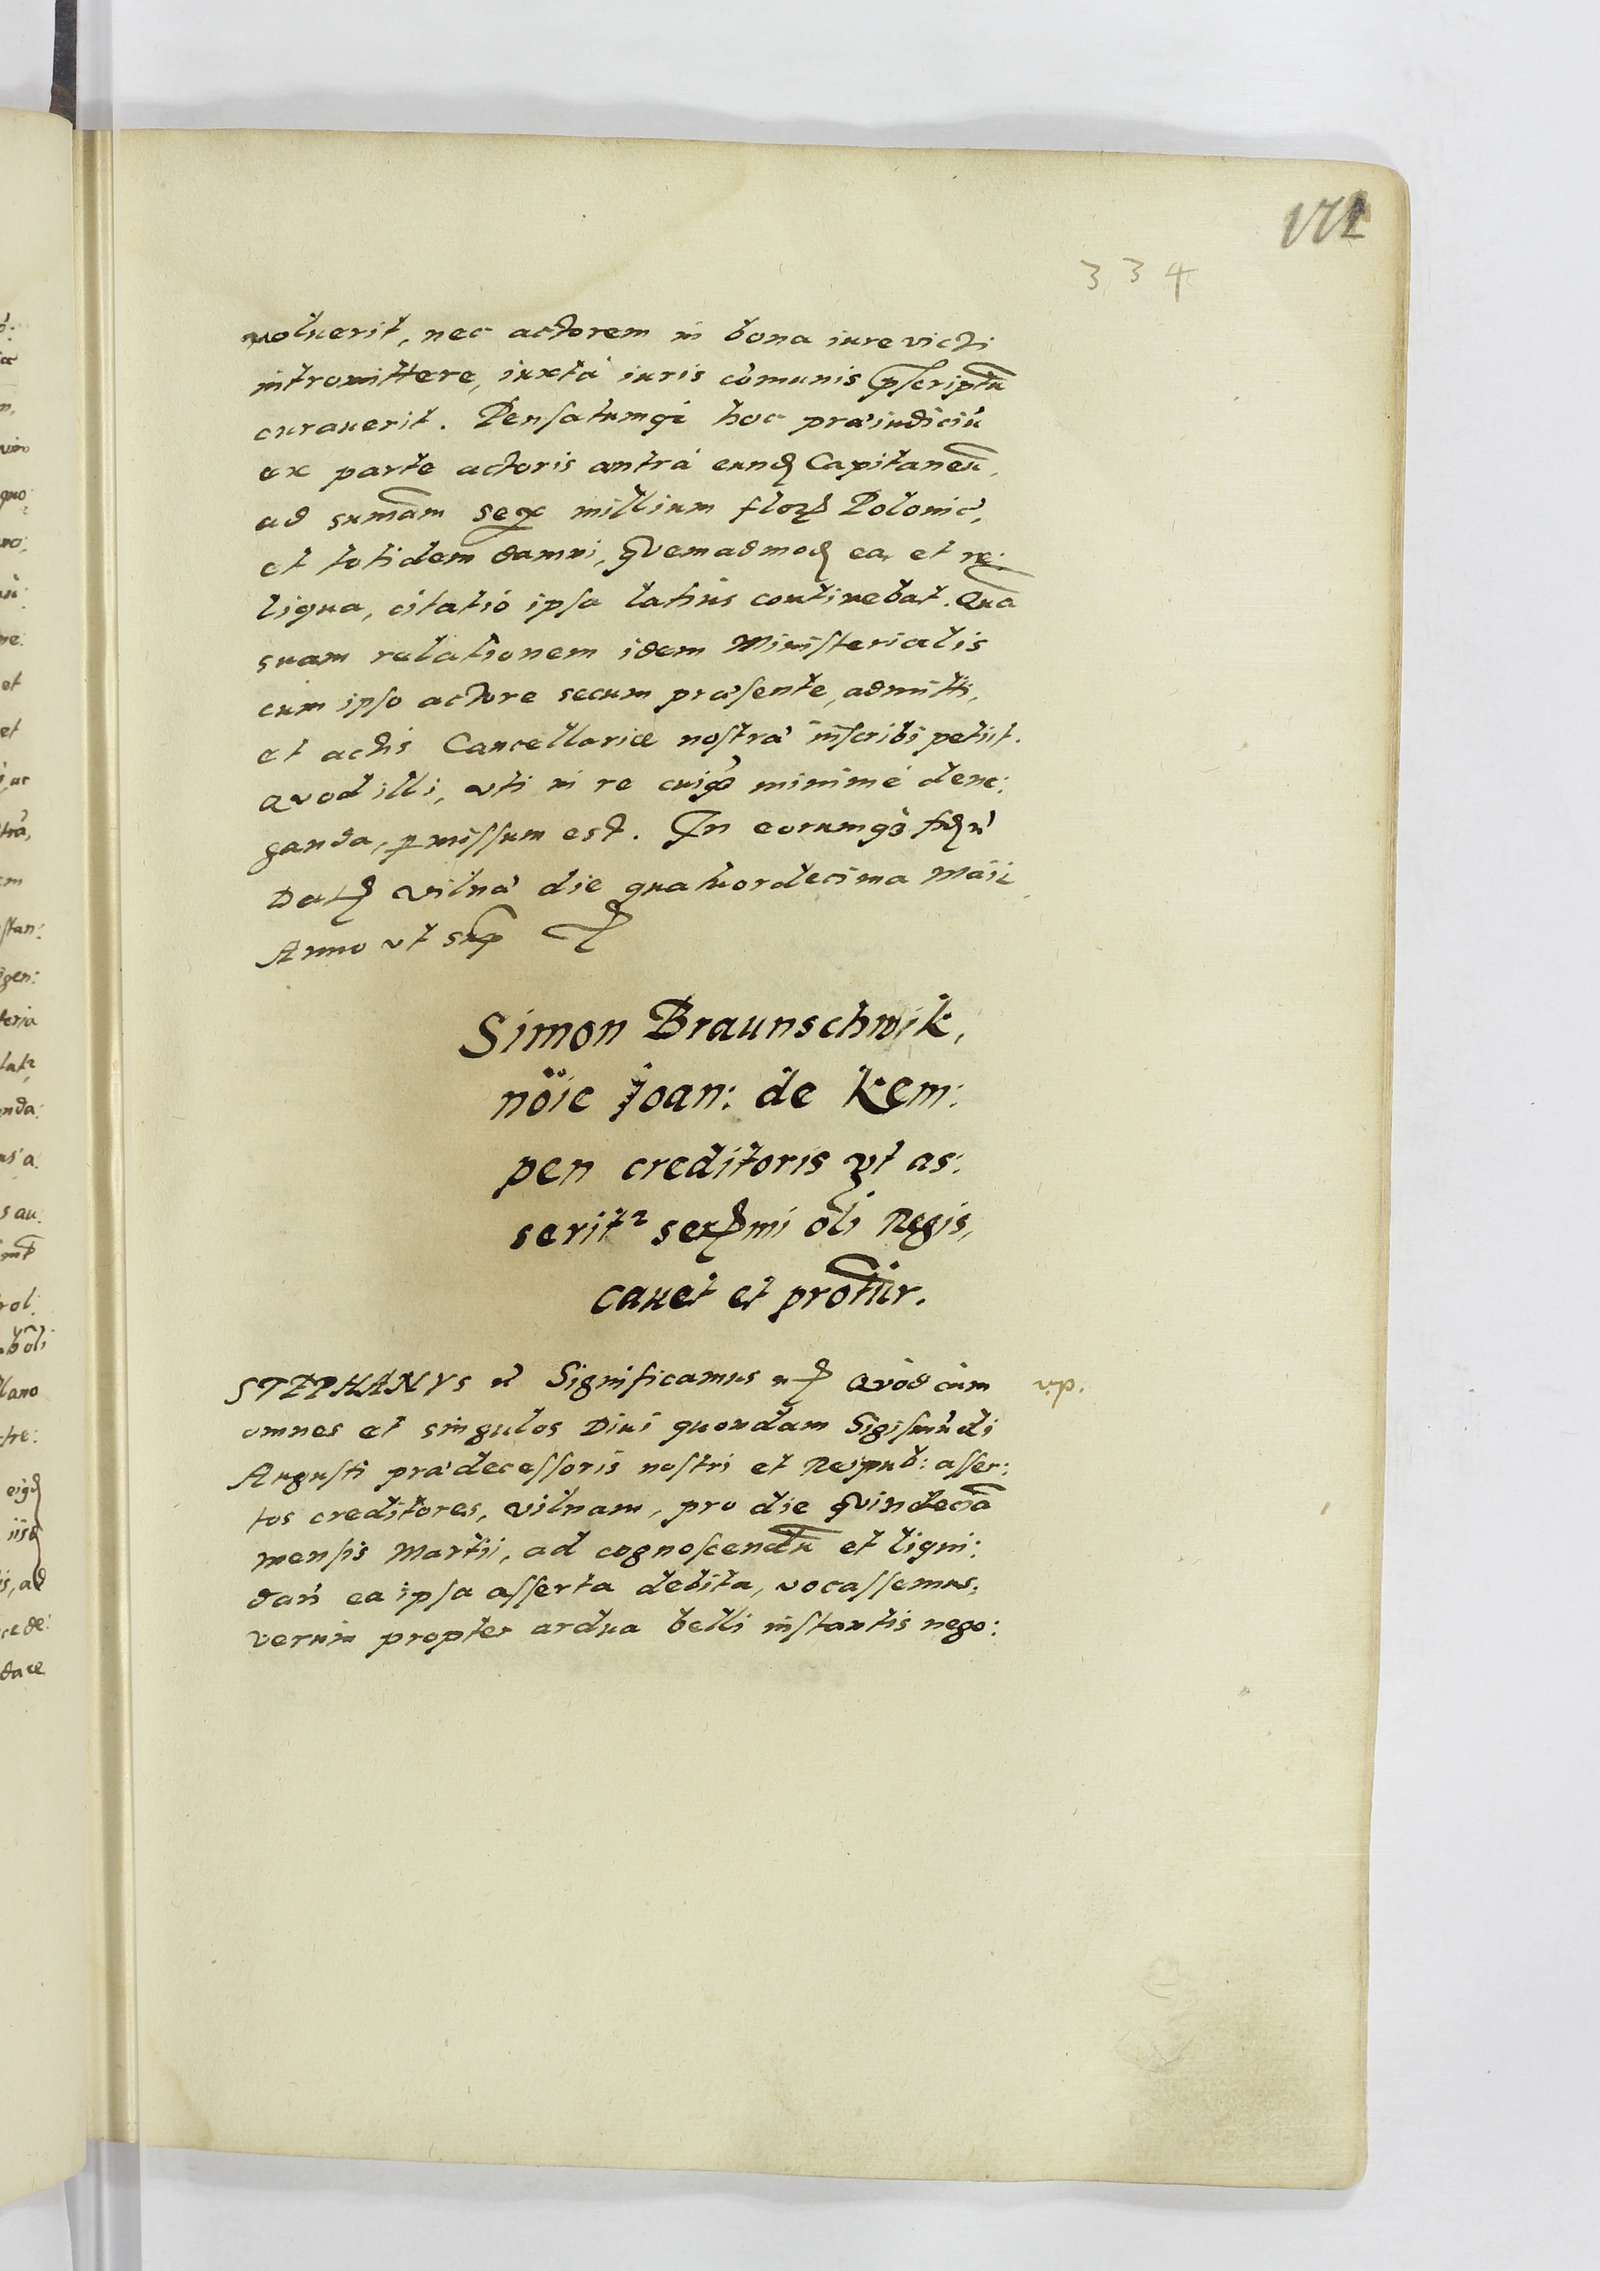 334
voluerit, nec actorem in bona iure victi
intromittere, iuxtà iuris cõmunis pscriptũ
curauerit. Pensatumq; hoc præiudiciũ
ex parte actoris contrà eund Capitaneũ,
ad sumam sex millium flor Polonic,
et totidem damni, quemadmod ea, et re:
liqua, citatio ipsa latius continebat. Quã
suam relationem idem Ministerialis
cum ipso actore secum præsente, admitti,
et actis Cancellariæ nostræ inscribi petiit.
Quod illi, vti in re cuiq minimè dene:
ganda, pmissum est. In eorumq fid
Dat Vilnæ die quatuordecima Maii
Anno vt sup
Simon Braunschwik,
nõie Joan: de Kem:
pen creditoris vt as:
serit ser mi oli Regis,
cauet et protur.
STEPHANVS Significamus Quòd cùm
v.p.
omnes et singulos Diui quondam Sigismũdi
Augusti prædecessoris nostri et Reipub: asser:
tos creditores, Vilnam, pro die quindeciã
mensis Martii, ad cognoscendũ et liqui:
dan ea ipsa asserta debita, vocassemus,
verùm propter ardua belli instantis nego: